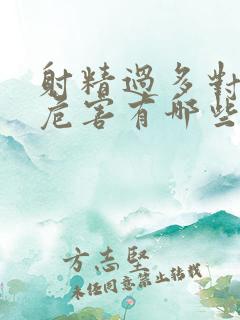 射精過多對
危害有哪些
方志堅
未经同意禁止转载